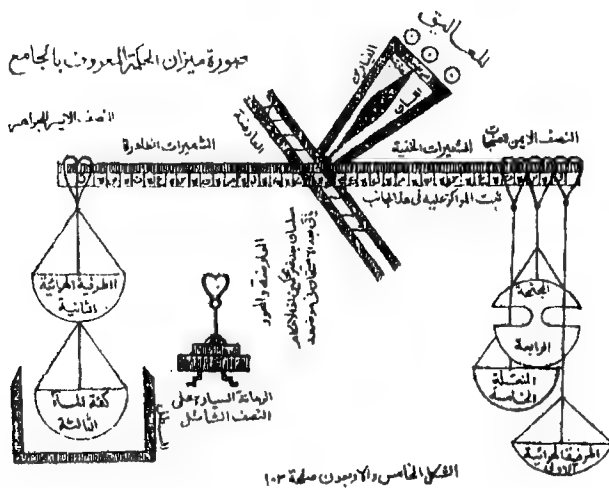 صورة ميزان الحكمة المعروف بالجامع
المعاليق
الفيارين
لسان
العارضة
النصف الايسر للجواهر
الشعيرات الظاهرة
الشعيرات الخفية
النصف الايمن
ثبت المراكز عليه في هذا الجانب
العارضة والمحور
الطرفية الهوائية
الثانية
كفة الماء
الثالثة
الرمانة السيارة على
النصف الشائل
المجنحة
الرابعة
المنتقلة
الخامسة
الطرفية الهوائية
الاولى
الشكل الخامس والاربعون صفحة ١٠٣